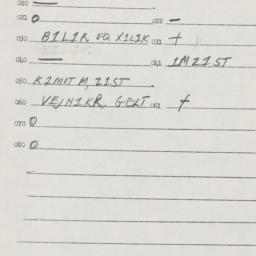 020 —
021 0 022 —
030 B1L1K EQ X1L1K 031 +
040 — 041 1MZ1ST
050 K1MOT M, Z1ST
060 VEJN1KR, GEZT 061 +
070 0
080 0